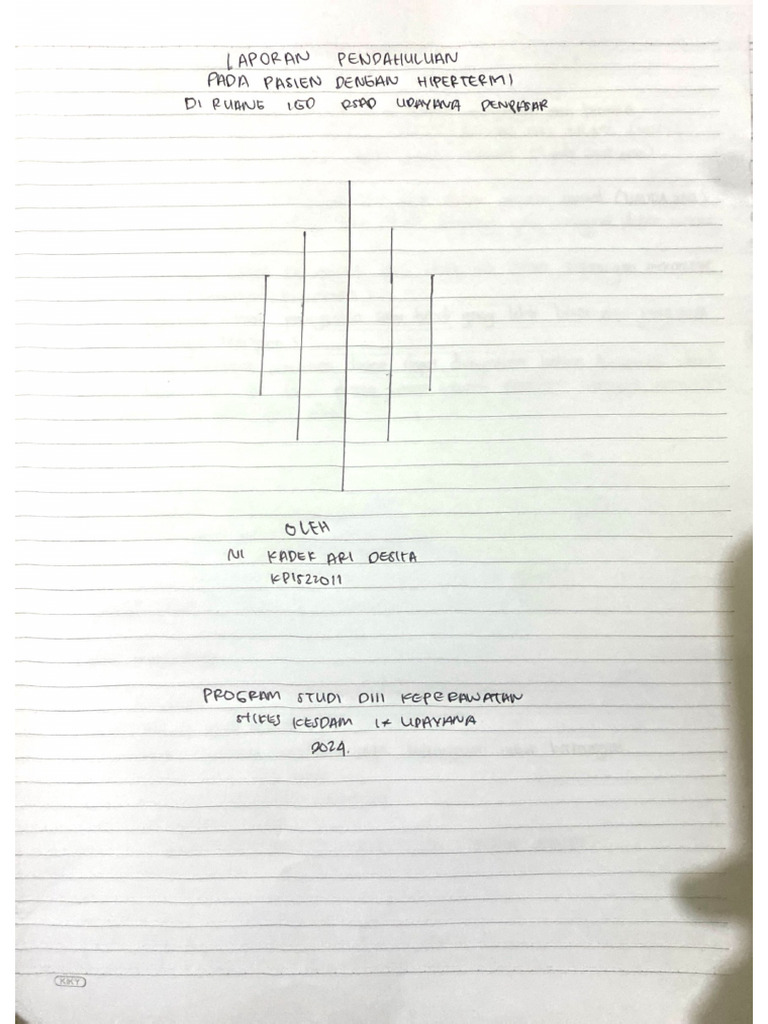 LAPORAN PENDAHULUAN
PADA PASIEN DENGAN HIPERTERMI
DI RUANG IGD RSAD UDAYANA DENPASAR
OLEH
NI KADEK ARI DESITA
KP1522011
PROGRAM STUDI DIII KEPERAWATAN
STIKES KESDAM IX UDAYANA
2024.
KIKY